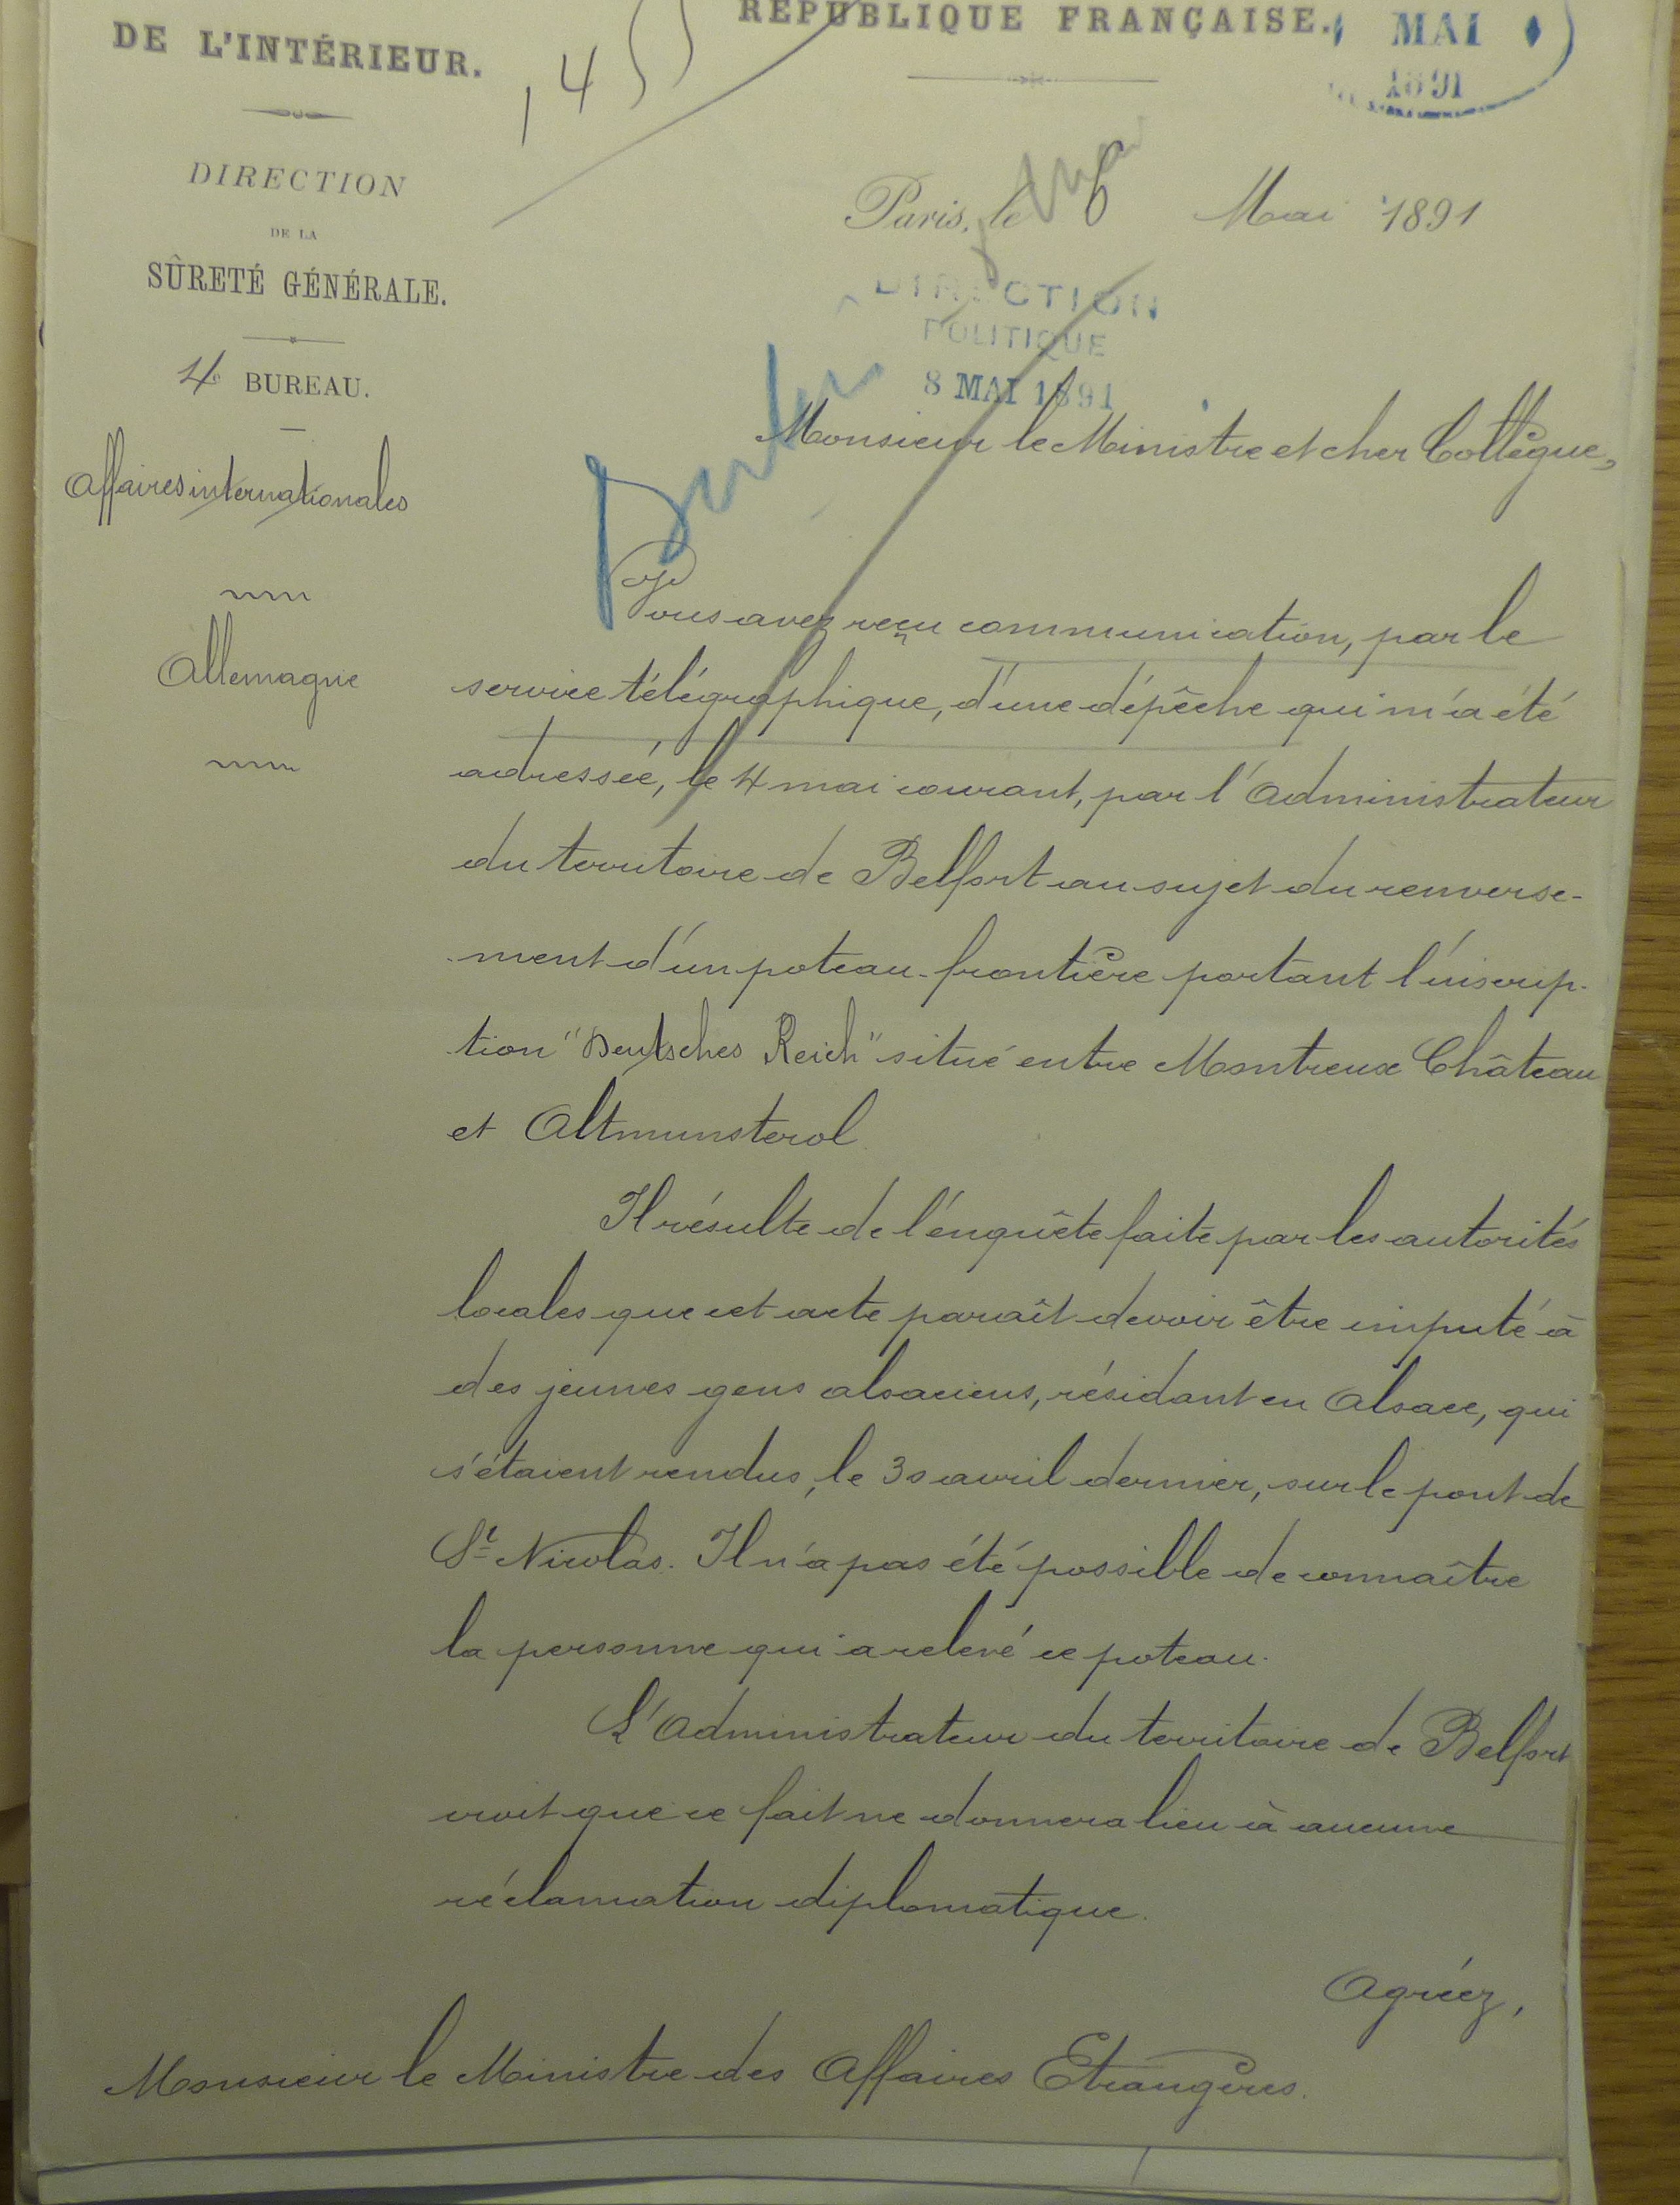 DE L'INTÉRIEUR.
RÉPUBLIQUE FRANÇAISE.
MAI
1891
DIRECTION
DE LA
SÛRETÉ GÉNÉRALE.
4e BUREAU.
Affaires internationales
Allemagne
Paris, le 6 Mai 1891
DIRECTION
POLITIQUE
8 MAI 1891
Monsieur le Ministre et cher Collègue,
Vous avez reçu communication, par le
service télégraphique, d'une dépêche qui m'a été
adressée, le 4 mai courant, par l'Administrateur
du territoire de Belfort au sujet du renverse-
ment d'un poteau-frontière portant l'inscrip-
tion "Deutsches Reich" situé entre Montreux Château
et Altmunsterol.
Il résulte de l'enquête faite par les autorités
locales que cet acte paraît devoir être imputé à
des jeunes gens alsaciens, résidant en Alsace, qui
s'étaient rendus, le 30 avril dernier, sur le pont de
St Nicolas. Il n'a pas été possible de connaître
la personne qui a relevé ce poteau.
L'Administrateur du territoire de Belfort
croit que ce fait ne donnera lieu à aucune
réclamation diplomatique.
Agréez,
Monsieur le Ministre des Affaires Etrangères.